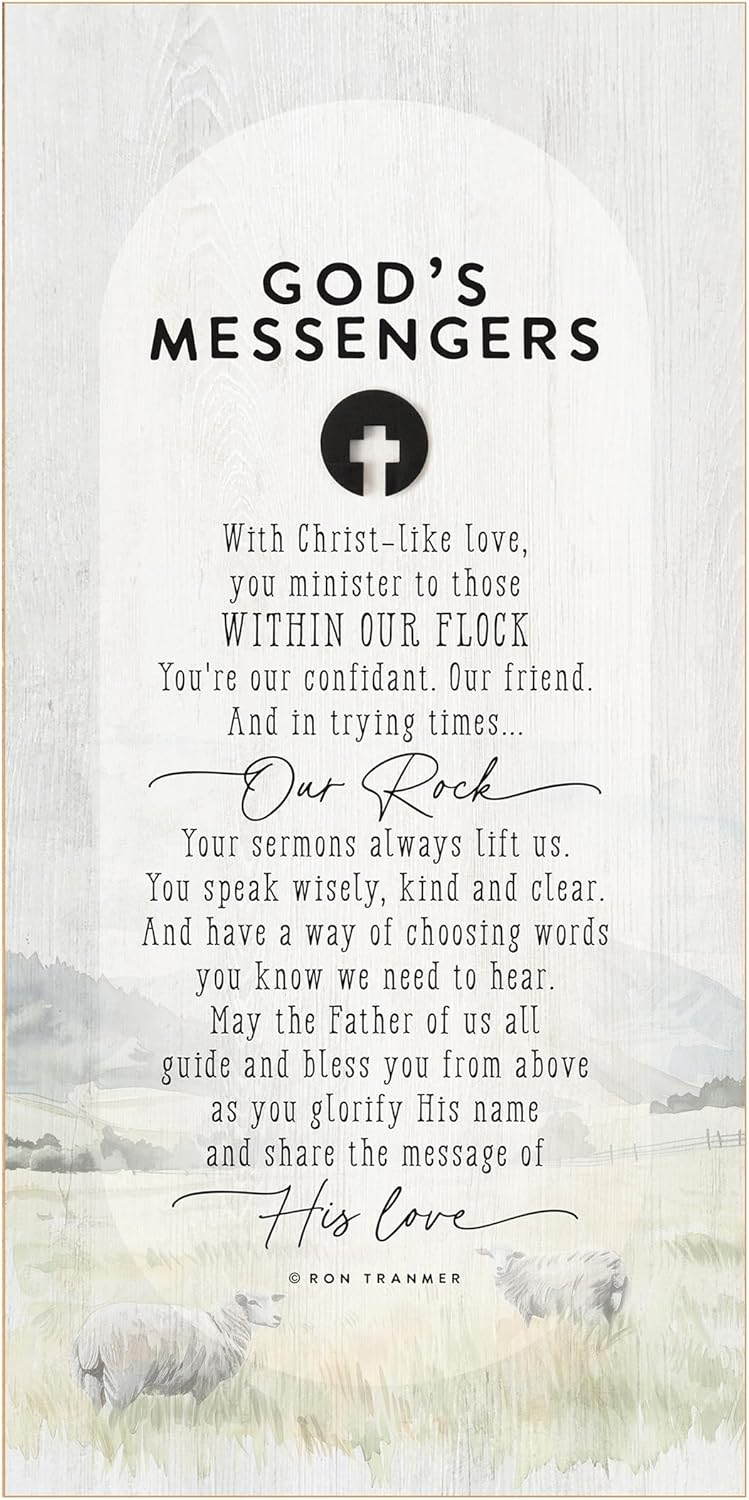 GOD'S
MESSENGERS
With Christ-like love,
you minister to those
WITHIN OUR FLOCK
You're our confidant. Our friend.
And in trying times...
Our Rock
Your sermons always lift us.
You speak wisely, kind and clear.
And have a way of choosing words
you know we need to hear.
May the Father of us all
guide and bless you from above
as you glorify His name
and share the message of
His love
© RON TRANMER